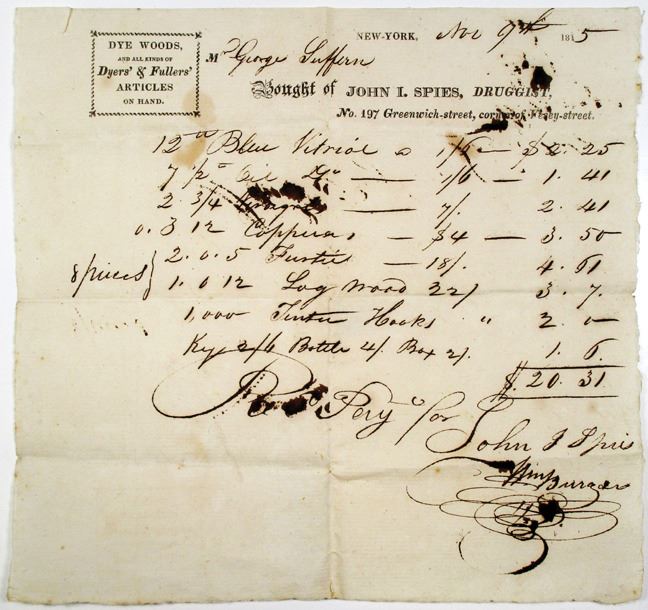 DYE WOODS,
AND ALL KINDS OF
Dyers' & Fullers'
ARTICLES
ON HAND.
NEW-YORK, Nov 9th 1815
Mr George Suffern
Bought of JOHN I. SPIES, DRUGGIST,
No. 197 Greenwich-street, corner of Vesey-street.
12 Blue Vitriol a 1/6 — $2.25
7 1/2 " Oil Do — 1/6 — 1.41
2 3/4 — 7/. 2.41
0.3.12 Copperas — $4 — 3.50
8 pieces } 2.0.5 Fustic — 18/. 4.61
1.0.12 Log wood 22/ 3.7.
1,000 Hooks " 2.0
Keg 2/6 Bottle 4/. Box 2/. 1.6.
$.20.31
for
John I Spies
Wm Burger